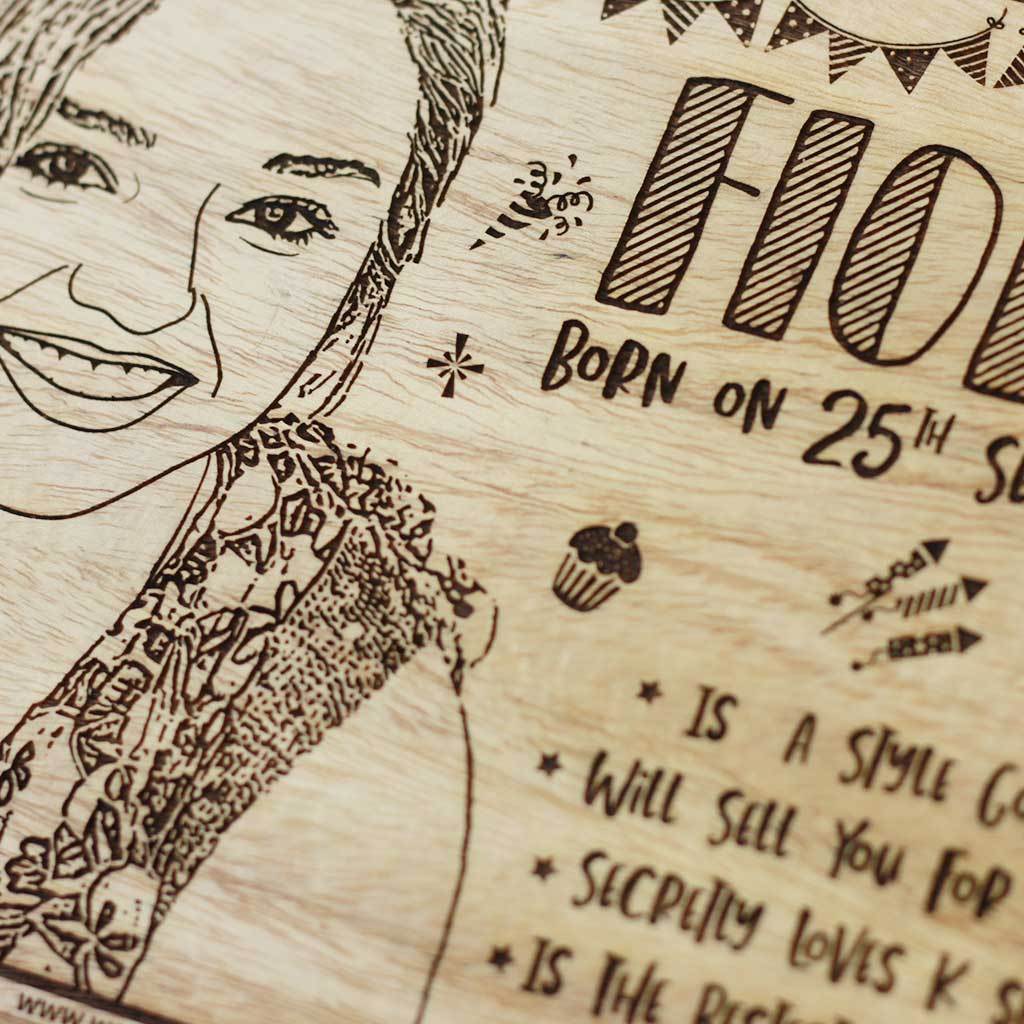 FIO
BORN ON 25TH SE
★ IS A STYLE GO
★ WILL SELL YOU FOR
★ SECRETLY LOVES K S
★ IS THE BEST
www.w